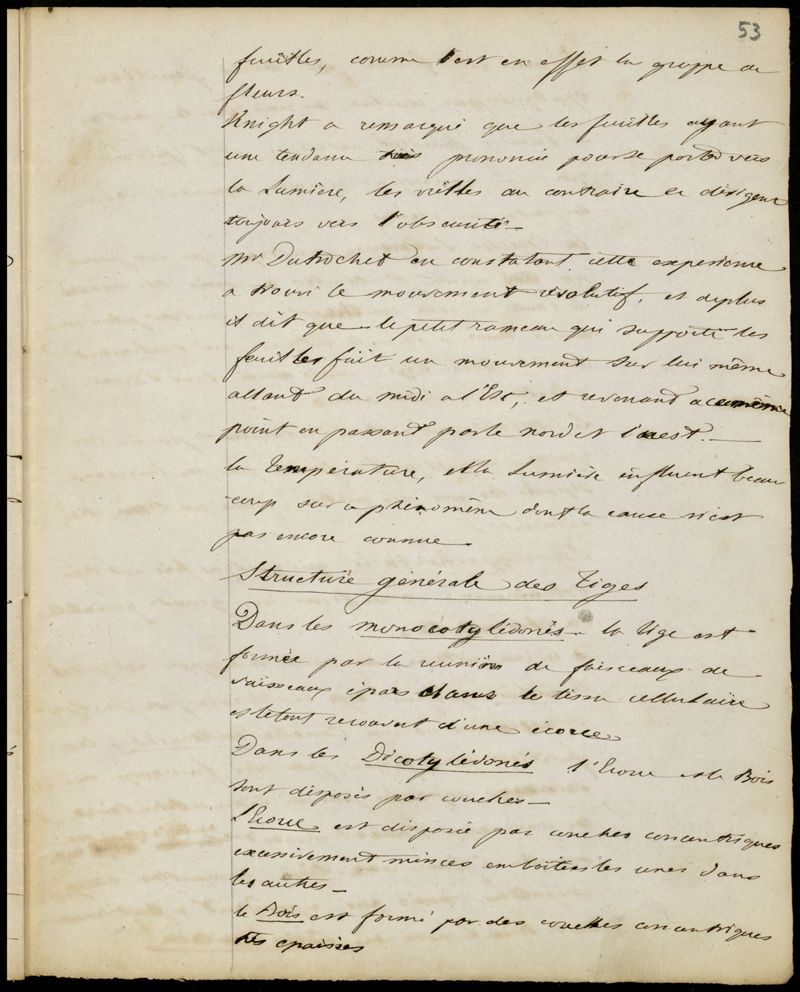 53
feuilles, comme l'est en effet la grappe de
fleurs.
Knight a remarqué que les feuilles ayant
une tendance très prononcée pour se porter vers
la Lumière, les vrilles au contraire se dirigent
toujours vers l'obscurité.
Mr Dutrochet en constatant cette experience
a trouvé le mouvement révolutif, et deplus
il dit que le petit rameau qui supporte les
feuilles fait un mouvement sur lui même
allant du midi a l'Est, et revenant a ce même
point en passant par le nord et l'ouest. —
la Température, et la Lumière influent beau-
-coup sur ce phénomène dont la cause n'est
pas encore connue.
Structure générale des Tiges
Dans les monocotylédonés la tige est
formée par la reunion de faisceaux de
vaisseaux épars dans le tissu cellulaire
et le tout recouvert d'une écorce
Dans les Dicotylédonés l'Ecorce et le Bois
sont disposés par couches —
L'Ecorce est disposée par couches concentriques
excessivement minces emboitées les unes dans
les autres —
le Bois est formé par des couches concentriques
très epaisses